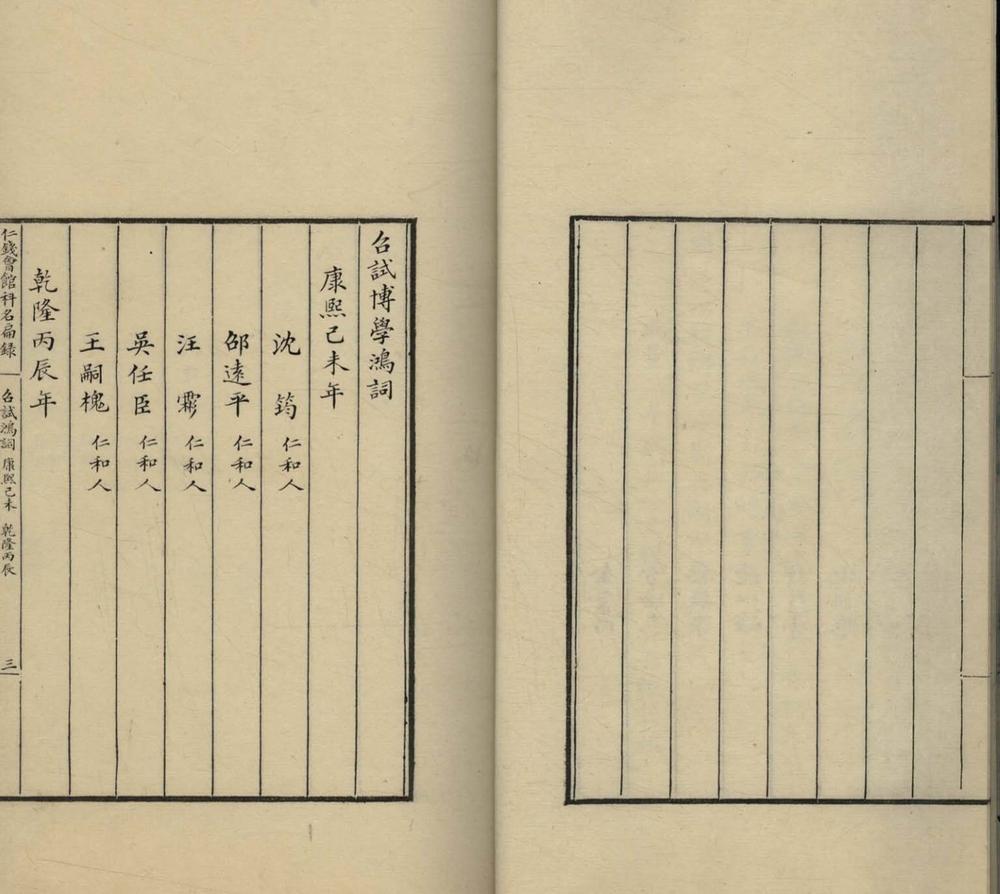 召試博學鴻詞
康熙己未年
沈筠 仁和人
邵遠平 仁和人
汪霦 仁和人
吳任臣 仁和人
王嗣槐 仁和人
乾隆丙辰年
仁錢會館科名扁錄 召試鴻詞 康熙己未 乾隆丙辰 三